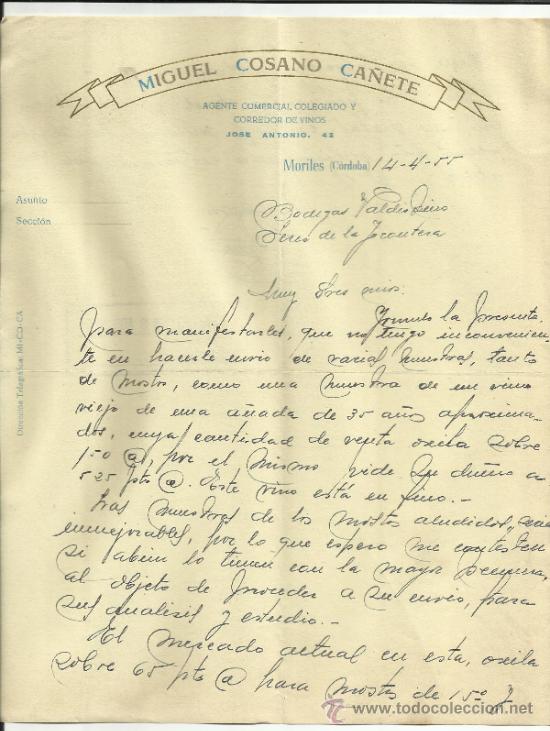 MIGUEL COSANO CAÑETE
AGENTE COMERCIAL COLEGIADO Y
CORREDOR DE VINOS
JOSE ANTONIO, 42
Moriles (Córdoba) 14-4-55
Asunto
Sección
Dirección Telegráfica: MI-CO-CA
Bodegas Valdespino
Jerez de la Frontera
Muy Sres mios.
Formulo la presente
para manifestarles, que no tengo inconvenien-
te en hacerle envio de varias muestras, tanto
de mostos, como una muestra de un vino
viejo de una añada de 35 años aproxima-
dos, cuya cantidad de venta oscila sobre
150 @, por el mismo pide su dueño a
525 pts @. Este vino está en fino.-
Las muestras de los mostos aludidos, son
inmejorables, por lo que espero me contesten
si abien lo tienen con la mayor premura,
al objeto de proceder a su envio, para
sus analisis y estudio.-
El mercado actual en esta, oscila
sobre 65 pts @ para mostos de 15º y
todocoleccion.net